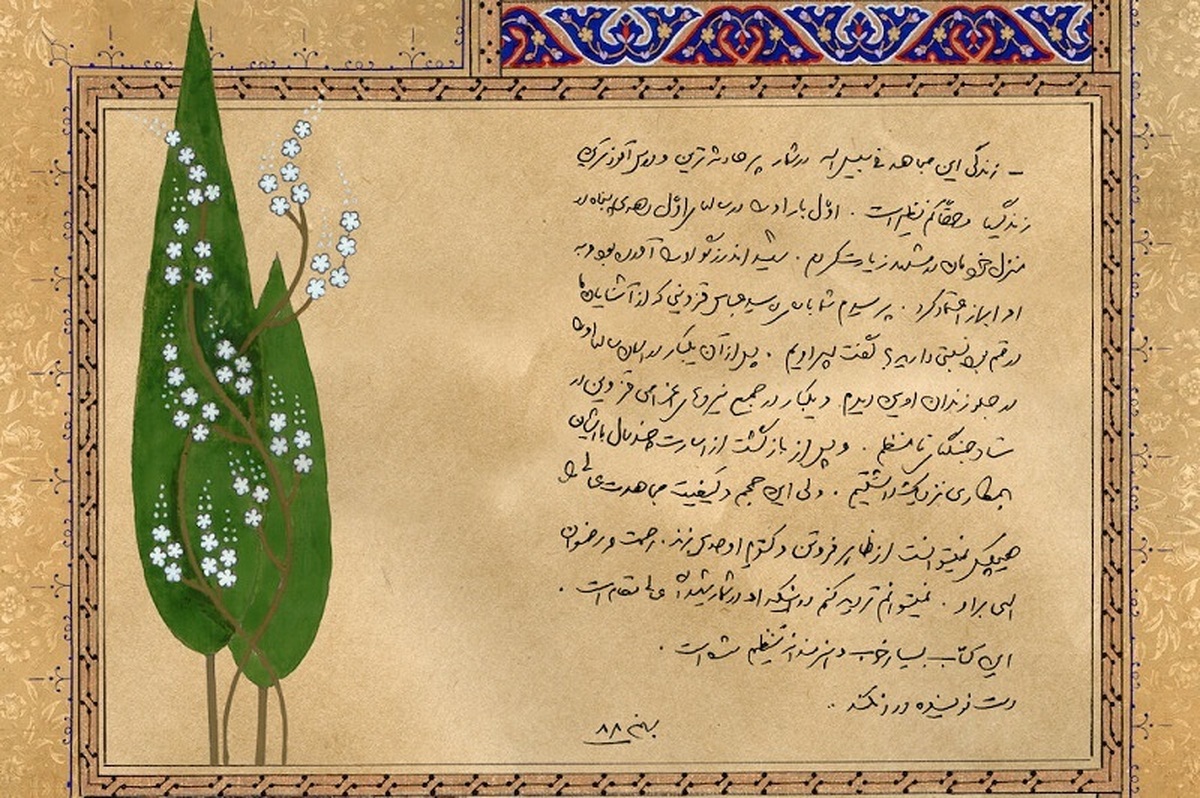 - زندگی این مجاهد فی سبیل الله در شمار پر حادثه ترین و درس آموزترین
زندگیها و حقاً کم نظیر است . اوّل بار او را در سالهای اوّل دهه‌ی پنجاه در
منزل خودمان در مشهد زیارت کردم . شهید اندرزگو او را آورده بود و به
او ابراز اعتماد کرد . پرسیدم شما با سید عباس قزوینی که از آشنایان ما
در قم بود نسبتی دارید؟ گفت پسر اویم . پس از آن یکبار در سالهای او را
در جلو زندان اوین دیدم . و یکبار در جمع نیروهای اعزامی قزوین در
ستاد جنگهای نامنظم . و پس از بازگشت از اسارت چند سال با ایشان
همکاری نزدیک داشتیم . ولی این حجم و کیفیت مجاهدت عالی را
هیچکس نمیتوانست از ظاهر فروتن و کتوم او حدس بزند . رحمت و رضوان
الهی بر او . نمیتوانم تردید کنم در اینکه او در شمار شهدای عالی مقام است .
این کتاب بسیار خوب و هنرمندانه تنظیم شده است .
دست نویسنده درد نکند ..
بهمن ۸۸